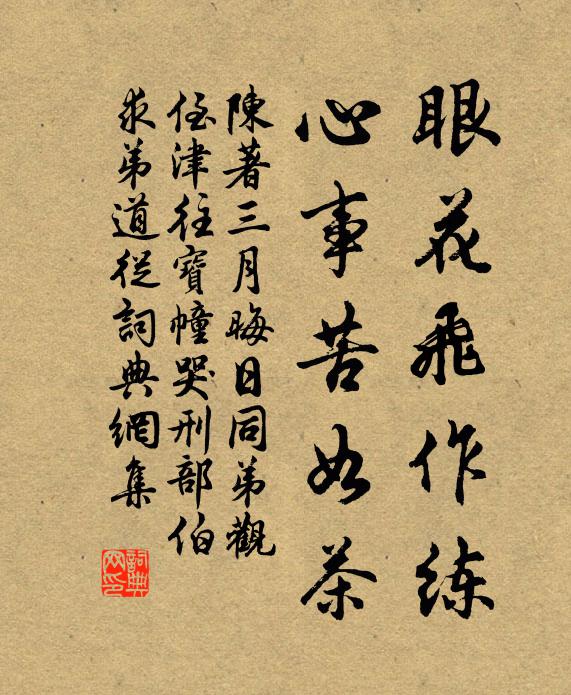 眼花飛作練
心事苦如茶
陳著三月晦日同弟觀
侄津往寶幢哭刑部伯
求弟道從詞典網集
詞典网印